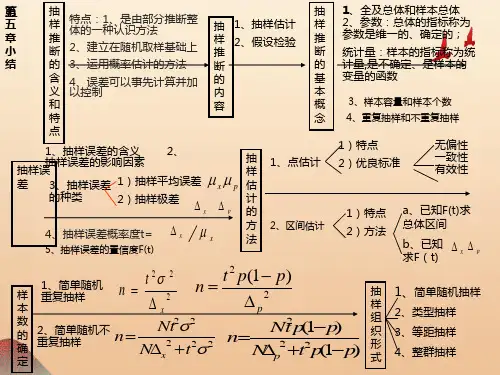 第五章小结
抽样推断的含义和特点
特点:1、是由部分推断整
体的一种认识方法
2、建立在随机取样基础上
3、运用概率估计的方法
4、误差可以事先计算并加
以控制
抽样推断的内容
1、抽样估计
2、假设检验
抽样推断的基本概念
1、全及总体和样本总体
2、参数:总体的指标称为
参数是维一的、确定的;
统计量:样本的指标称为统
计量,是不确定、是样本的
变量的函数
3、样本容量和样本个数
4、重复抽样和不重复抽样
抽样误差
1、抽样误差的含义 2、
抽样误差的影响因素
3、抽样误差
的种类
1)抽样平均误差 μx μp
2)抽样极差 Δx Δp
4、抽样误差概率度t= Δx / μx
5、抽样误差的置信度F(t)
抽样估计的方法
1、点估计
1)特点
2)优良标准
无偏性
一致性
有效性
2、区间估计
1)特点
2)方法
a、已知F(t)求
总体区间
b、已知 Δx Δp
求F(t)
样本数的确定
1、简单随机
重复抽样
n = t²σ² / Δx²
n = t²p(1−p) / Δp²
2、简单随机不
重复抽样
n = Nt²σ² / (NΔx² + t²σ²)
n = Nt²p(1−p) / (NΔp² + t²p(1−p))
抽样组织形式
1、简单随机抽样
2、类型抽样
3、等距抽样
4、整群抽样